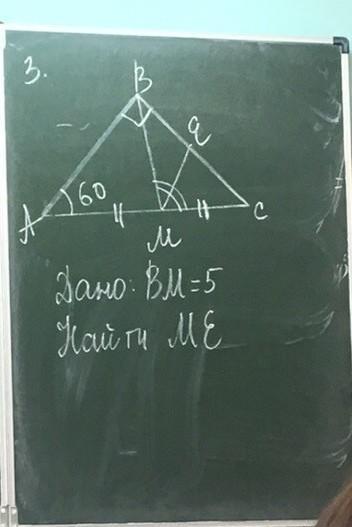 3.
B
E
60
A
M
C
Дано: BM=5
Найти ME